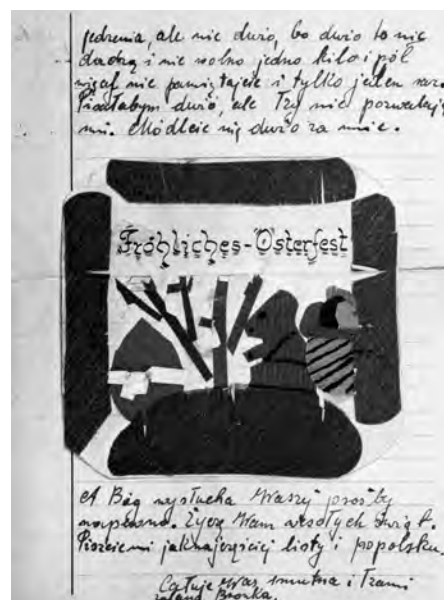 jedzenia, ale nie dużo, bo dużo to nie
dadzą i nie wolno jedno kilo i pół
więcej nie pamiętajcie i tylko jeden raz.
Pisałabym dużo, ale łzy nie pozwalają
mi. Módlcie się dużo za mnie.
Fröhliches-Osterfest
A Bóg wysłucha Waszej prośby
napewno. Życzę Wam wesołych świąt.
Piszcie mi jaknajczęściej listy i popolsku.
Całuję Was smutna i łzami
zalana Bronka.